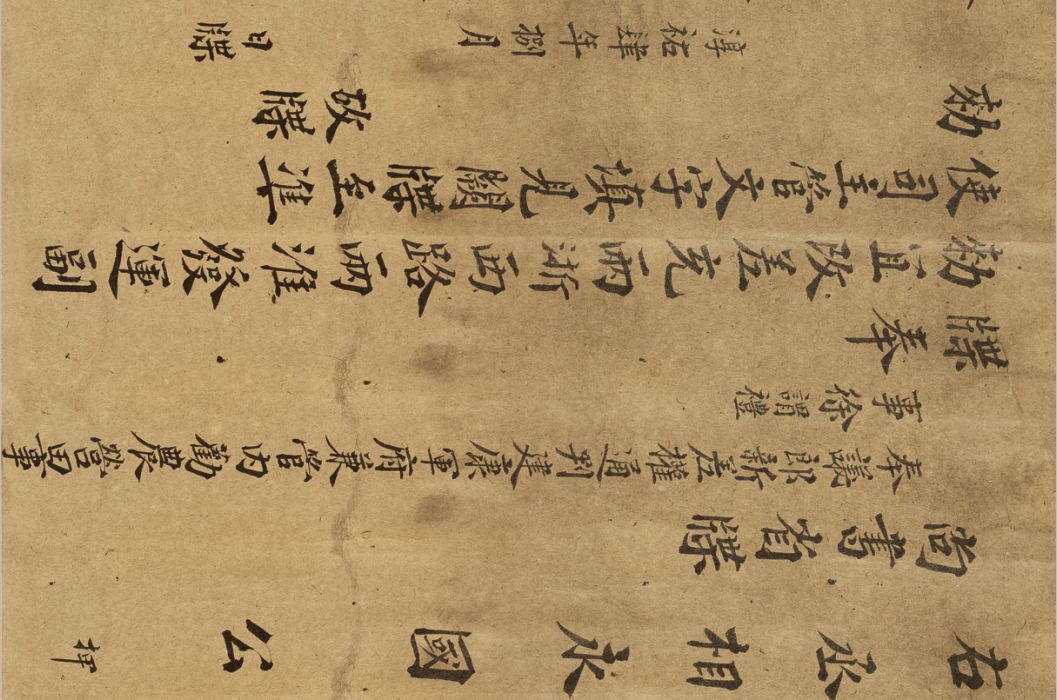 右丞相永國公 押
尚書省牒
奉議郎新差權通判建康軍府兼管内勸農營田事
事徐謂禮
牒奉
勅宜改差充兩浙西路兩淮發運副
使司主管文字填見闕牒至準
勅
故牒
淳祐肆年捌月 日牒